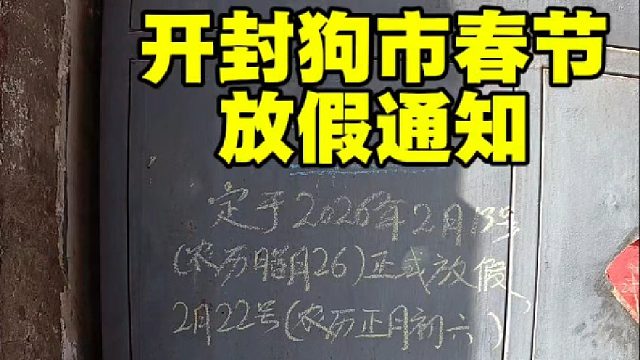 开封狗市春节
放假通知
定于2026年2月13号
(农历腊月26)正式放假,
2月22号(农历正月初六)